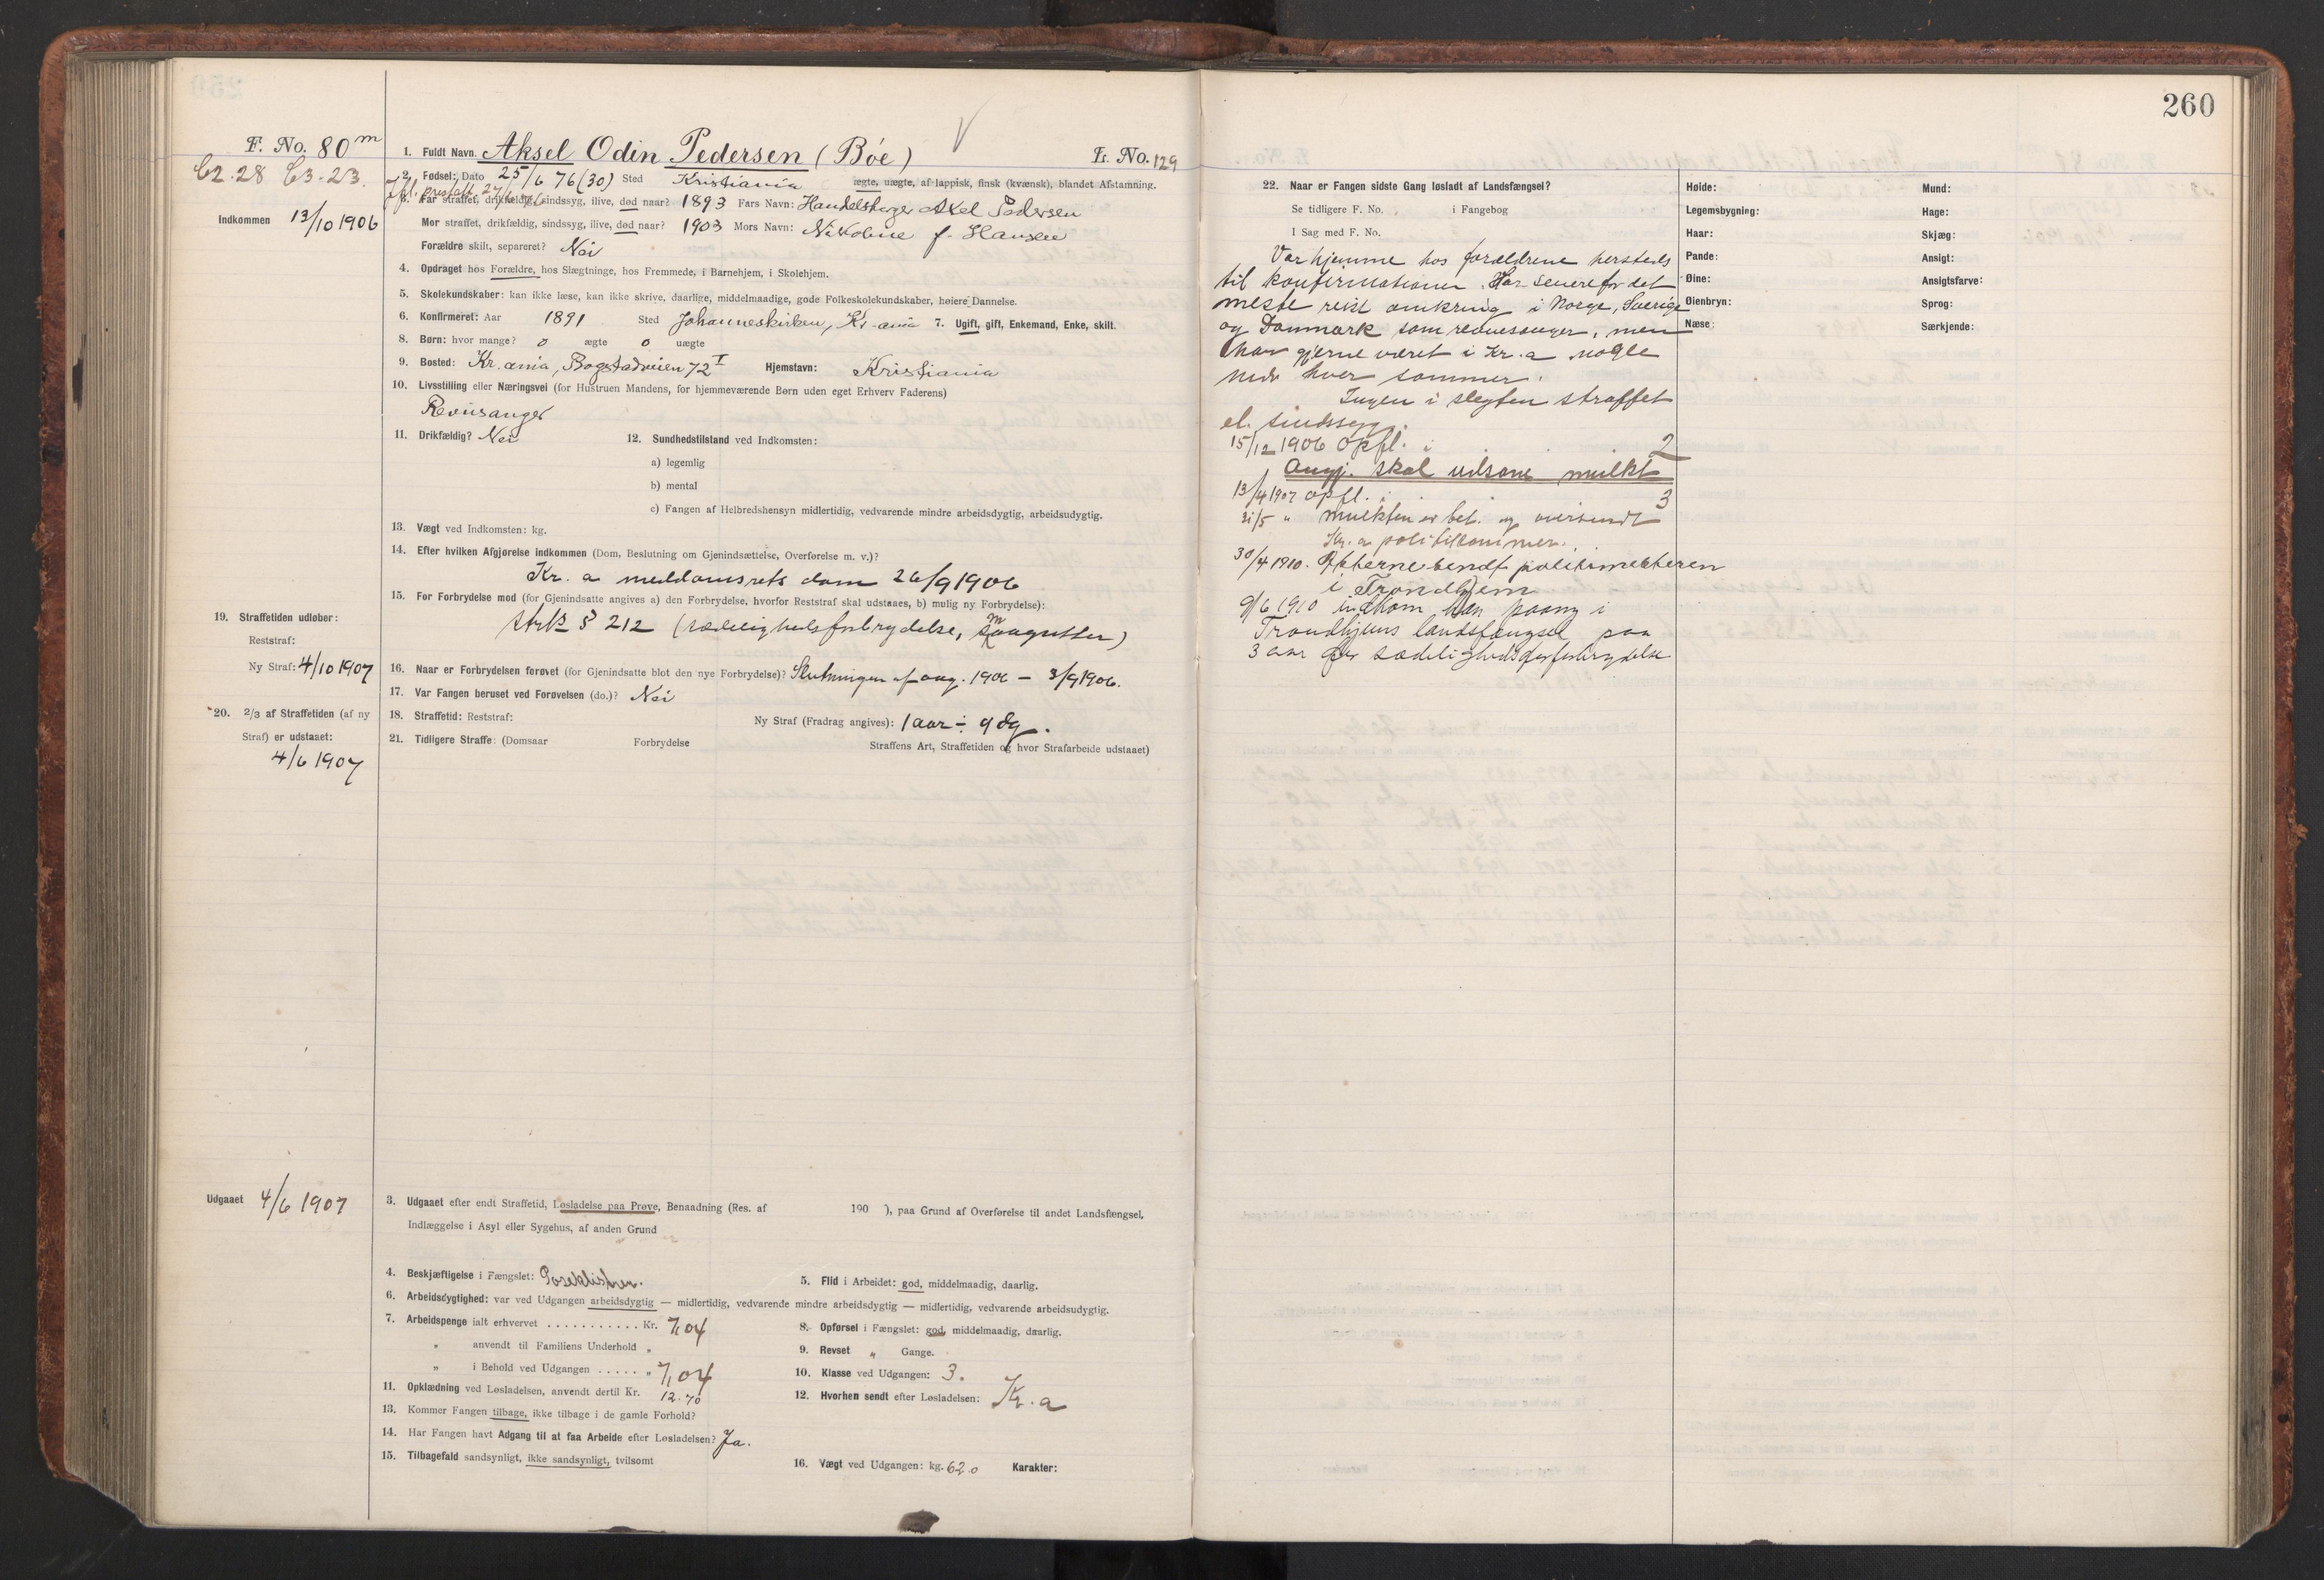 260
F. No. 80 m
C2.28 C3.23.
Indkommen 13/10 1906
1. Fuldt Navn. Aksel Odin Pedersen (Bóe) L. No. 129
2. Fødsel: Dato 25/6 76 (30) Sted Kristiania ægte, uægte, af lappisk, finsk (kvænsk), blandet Afstamning.
Ifl. prestatt. 27/6 76
3. Far straffet, drikfældig, sindssyg, ilive, død naar? 1893 Fars Navn: Handelsborger Axel Pedersen
Mor straffet, drikfældig, sindssyg, ilive, død naar? 1903 Mors Navn: Nikoline f. Hansen
Forældre skilt, separeret? Nei
4. Opdraget hos Forældre, hos Slægtninge, hos Fremmede, i Barnehjem, i Skolehjem.
5. Skolekundskaber: kan ikke læse, kan ikke skrive, daarlige, middelmaadige, gode Folkeskolekundskaber, høiere Dannelse.
6. Konfirmeret: Aar 1891 Sted Johanneskirken, Kr-ania 7. Ugift, gift, Enkemand, Enke, skilt.
8. Børn: hvor mange? 0 ægte 0 uægte
9. Bosted: Kr.ania, Bogstadveien 72 I Hjemstavn: Kristiania
10. Livsstilling eller Næringsvei (for Hustruen Mandens, for hjemmeværende Børn uden eget Erhverv Faderens)
Revusanger
11. Drikfældig? Nei 12. Sundhedstilstand ved Indkomsten:
a) legemlig
b) mental
c) Fangen af Helbredshensyn midlertidig, vedvarende mindre arbeidsdygtig, arbeidsudygtig.
13. Vægt ved Indkomsten: kg.
14. Efter hvilken Afgjørelse indkommen (Dom, Beslutning om Gjenindsættelse, Overførelse m. v.)?
Kr. a meddomsrets dom 26/9 1906
15. For Forbrydelse mod (for Gjenindsatte angives a) den Forbrydelse, hvorfor Reststraf skal udstaaes, b) mulig ny Forbrydelse):
Strl § 212 (sædelighedsforbrydelse, smaagutter)
19. Straffetiden udløber:
Reststraf:
Ny Straf: 4/10 1907
16. Naar er Forbrydelsen forøvet (for Gjenindsatte blot den nye Forbrydelse)? Slutningen af aug. 1906 – 3/9 1906.
17. Var Fangen beruset ved Forøvelsen (do.)? Nei
20. 2/3 af Straffetiden (af ny Straf) er udstaaet:
4/6 1907
18. Straffetid: Reststraf: Ny Straf (Fradrag angives): 1 aar ÷ 9 dg.
21. Tidligere Straffe: (Domsaar Forbrydelse Straffens Art, Straffetiden og hvor Strafarbeide udstaaet)
Udgaaet 4/6 1907
3. Udgaaet efter endt Straffetid, Løsladelse paa Prøve, Benaadning (Res. af 190 ), paa Grund af Overførelse til andet Landsfængsel,
Indlæggelse i Asyl eller Sygehus, af anden Grund
4. Beskjæftigelse i Fængslet: Poseklistrer. 5. Flid i Arbeidet: god, middelmaadig, daarlig.
6. Arbeidsdygtighed: var ved Udgangen arbeidsdygtig — midlertidig, vedvarende mindre arbeidsdygtig — midlertidig, vedvarende arbeidsudygtig.
7. Arbeidspenge ialt erhvervet ........... Kr. 7,04 8. Opførsel i Fængslet: god, middelmaadig, daarlig.
„ anvendt til Familiens Underhold „ 9. Revset „ Gange.
„ i Behold ved Udgangen ..... „ 7,04 10. Klasse ved Udgangen: 3.
11. Opklædning ved Løsladelsen, anvendt dertil Kr. 12.70 12. Hvorhen sendt efter Løsladelsen: Kr. a
13. Kommer Fangen tilbage, ikke tilbage i de gamle Forhold?
14. Har Fangen havt Adgang til at faa Arbeide efter Løsladelsen? Ja.
15. Tilbagefald sandsynligt, ikke sandsynligt, tvilsomt
16. Vægt ved Udgangen: kg. 62.0 Karakter:
22. Naar er Fangen sidste Gang løsladt af Landsfængsel?
Se tidligere F. No. i Fangebog
I Sag med F. No.
Var hjemme hos forældrene hersteds
til konfirmationen. Har senere for det
meste reist omkring i Norge, Sverige
og Danmark som revuesanger, men
har gjerne været i Kr.a nogle
mdr hver sommer.
Ingen i slegten straffet
el. sindssyg.
15/12 1906 opfl. i 2
Angj. skal udsone mulkt
13/4 1907 opfl. i 3
31/5 „ mulkten er bet. og oversendt
Kr. a politikammer.
30/4 1910. Akterne sendt politimesteren
i Trondhjem
9/6 1910 indkom han paany i
Trondhjems landsfængsel paa
3 aar for sædelighedsforbrydelse
Høide:
Legemsbygning:
Haar:
Pande:
Øine:
Øienbryn:
Næse:
Mund:
Hage:
Skjæg:
Ansigt:
Ansigtsfarve:
Sprog:
Særkjende: